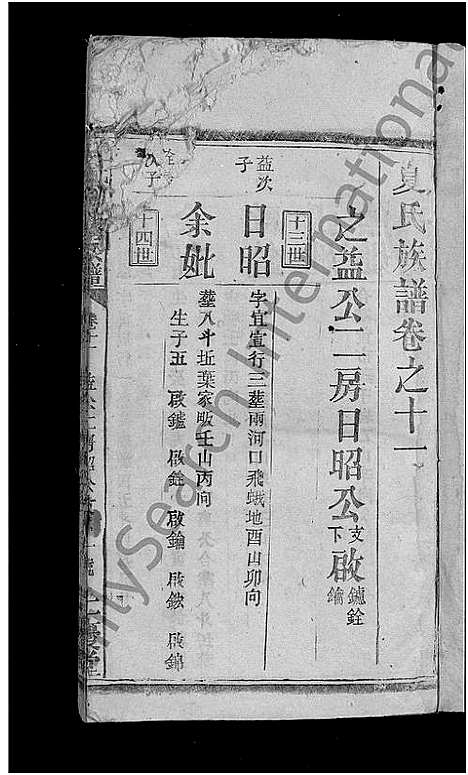 夏氏族譜卷之十一
之益公二房日昭公支下啟鑪銓鑰
十三世
益次子
日昭
字宜宣行三塟兩河口飛蛾地酉山卯向
余妣
塟八斗坵葉家畈壬山丙向
生子五 啟鑪 啟銓 啟鑰 啟鋐 啟錦
十四世
FamilySearch International